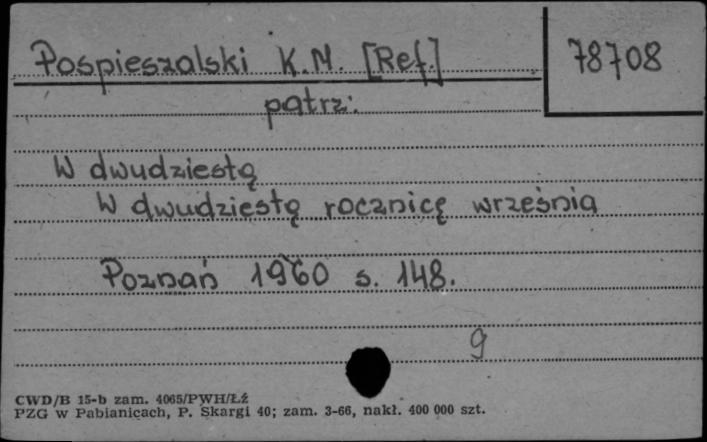 Pospieszalski K.M. [Ref.] 78708
patrz:
W dwudziestą
W dwudziestą rocznicę września
Poznań 1960 s. 148.
g
CWD/B 15-b zam. 4065/PWH/Łź
PZG w Pabianicach, P. Skargi 40; zam. 3-66, nakł. 400 000 szt.